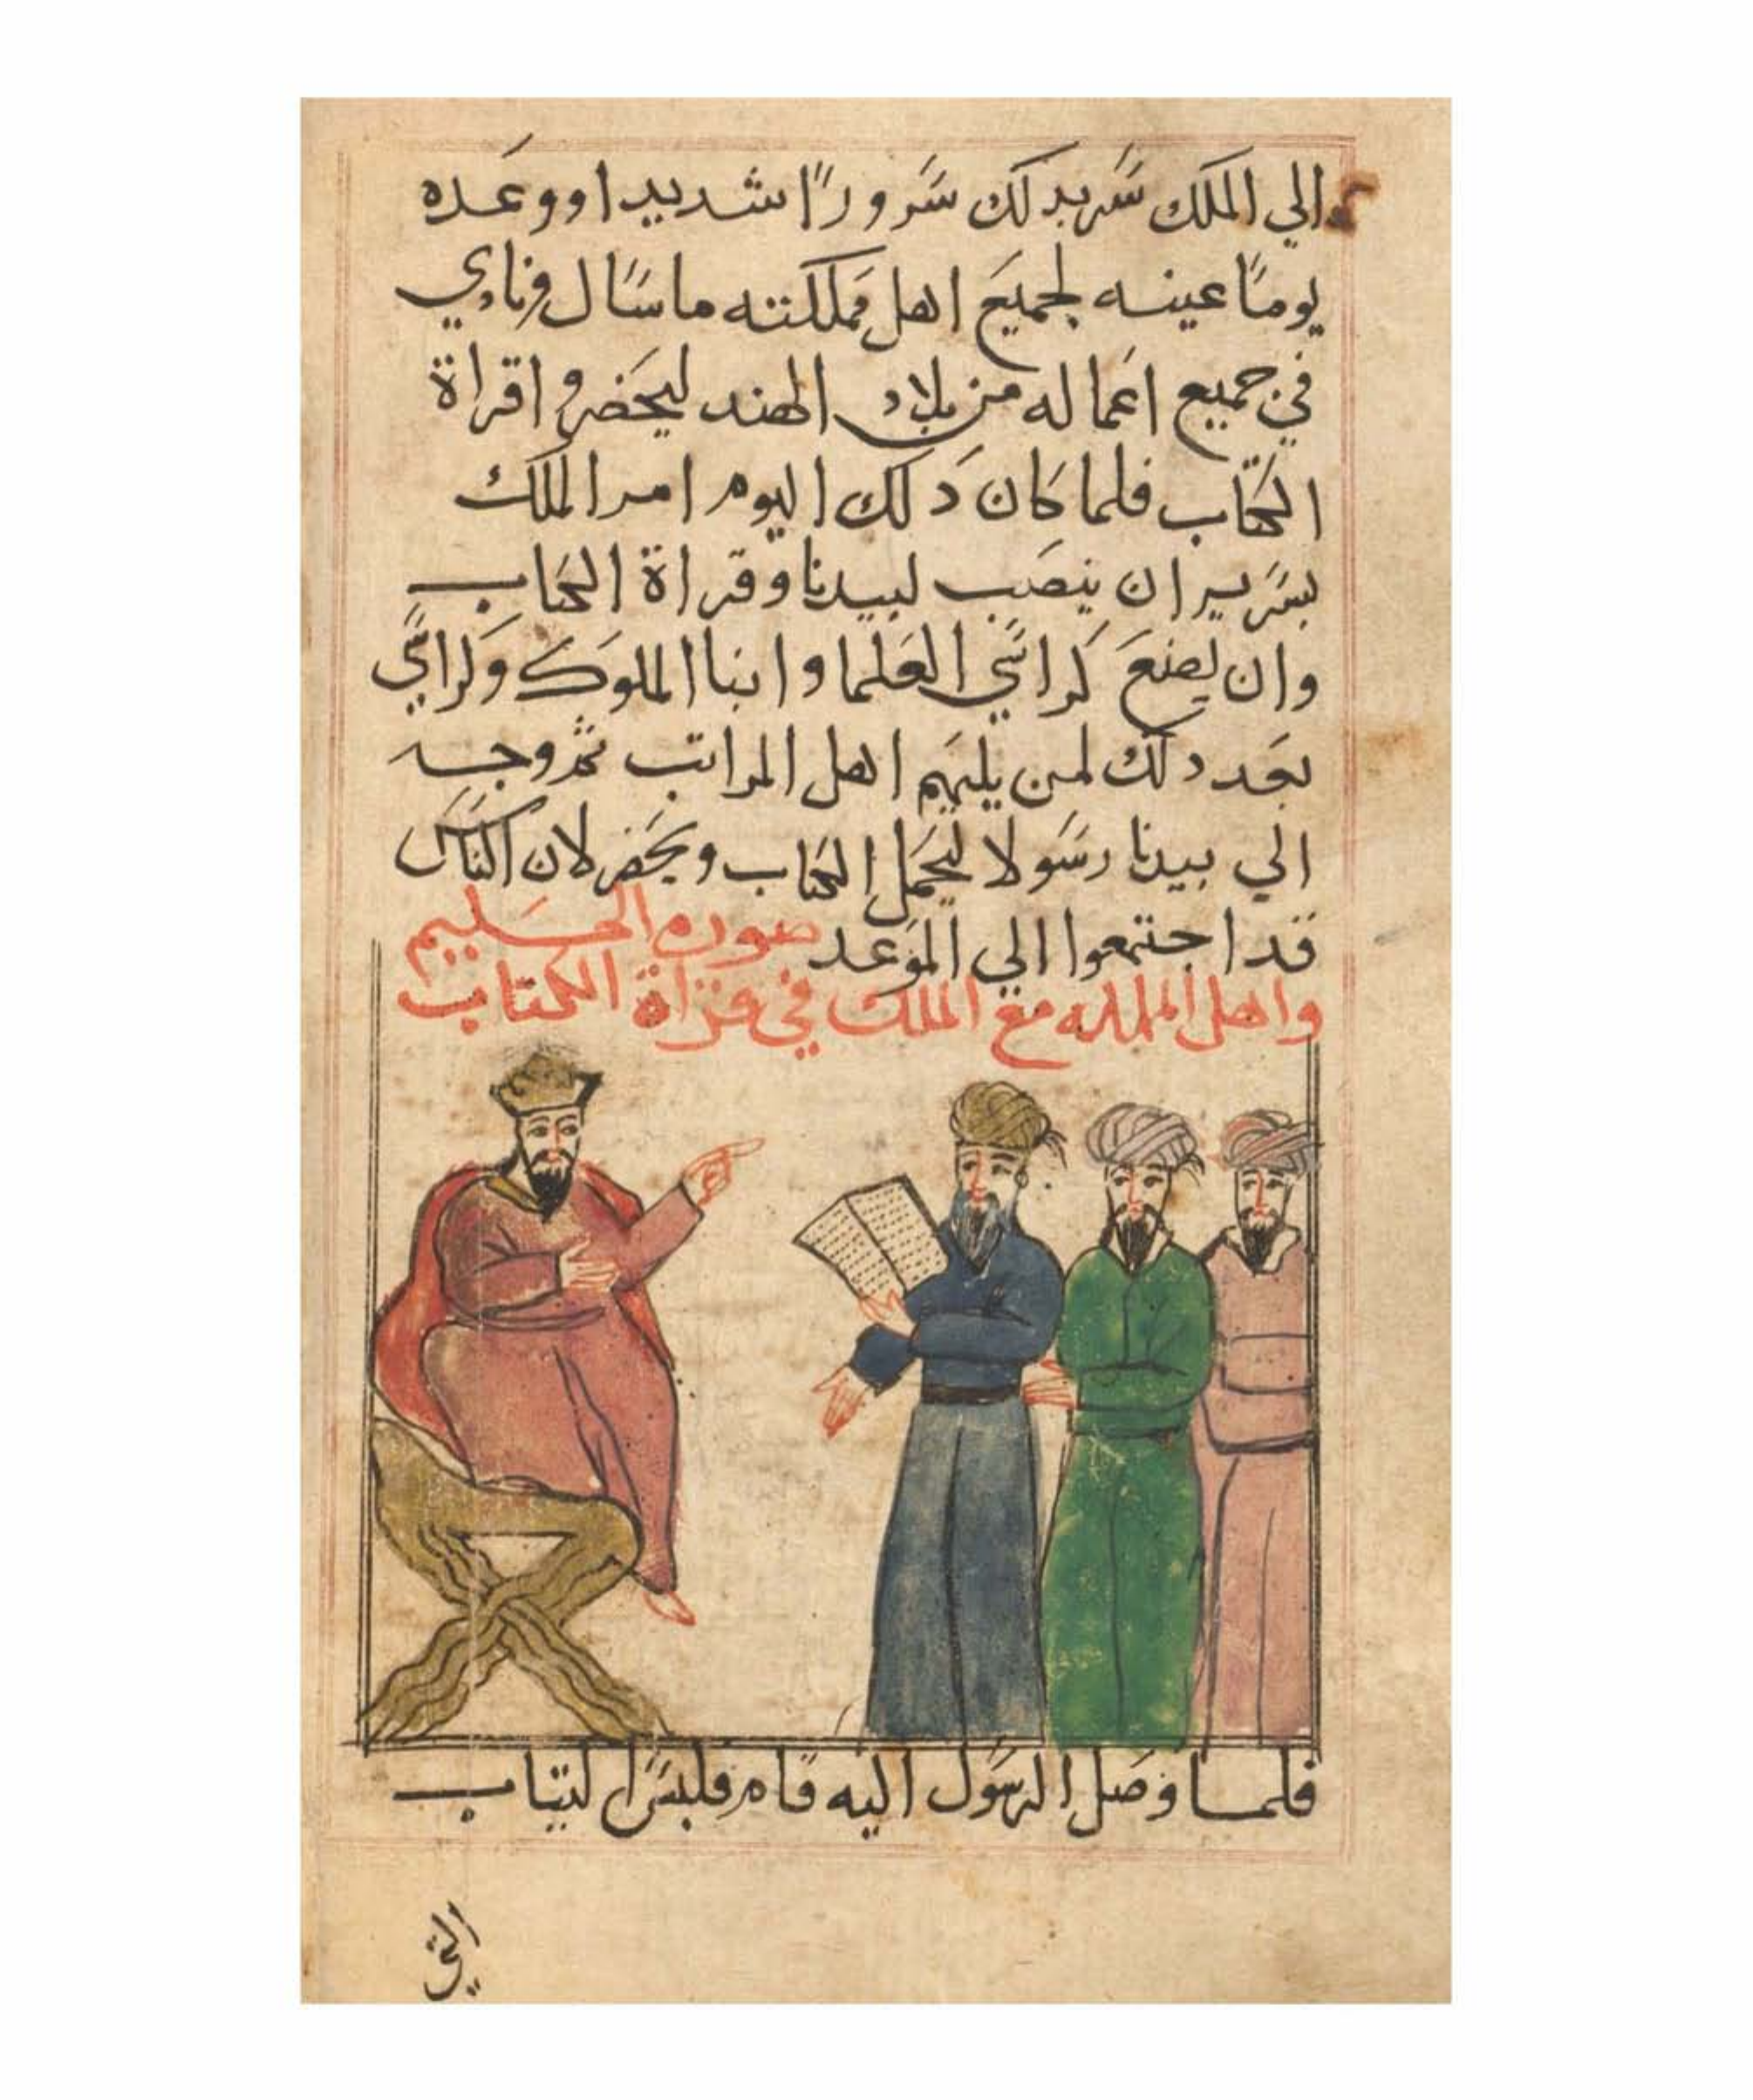 الي الملك سر بدلك سرورًا شديدا ووعده
يومًا عينه لجميع اهل مملكته ما سال ونادي
في جميع اعماله من بلاد الهند ليحضروا قراة
الكتاب فلما كان دلك اليوم امر الملك
بسرير ان ينصب لبيدنا وقراة الكتاب
وان يصنع كراسي العلما وابنا الملوك وكراسي
بعد دلك لمن يليهم اهل المراتب ثم وجه
الي بيدنا رسولا ليحمل الكتاب ويحضر لان الناس
قد اجتمعوا الي الموعد صوره
واهل المملكه مع الملك في قراة الكتاب
فلما وصل الرسول اليه قام فلبس التياب
التي